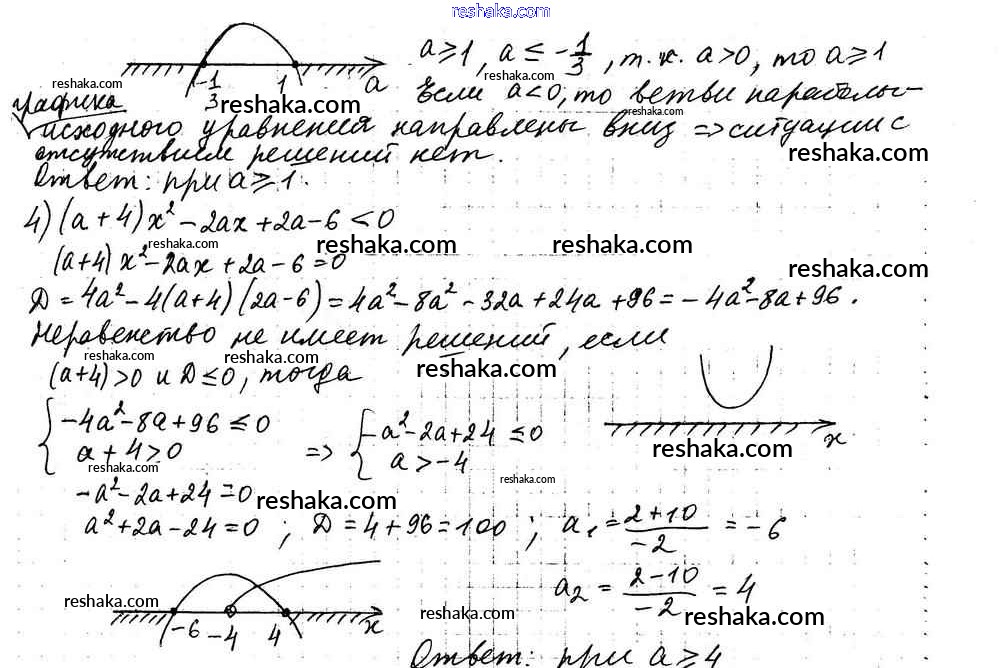 reshaka.com
a≥1, a ≤ -1/3, т.к. a>0, то a≥1
reshaka.com
reshaka.com
-1/3 1 a
Если a<0, то ветви параболы
reshaka.com
reshaka.com
графика
исходного уравнения направлены вниз => ситуации с
reshaka.com
отсутствием решений нет.
reshaka.com
Ответ: при a≥1.
4) (a+4)x² - 2ax + 2a - 6 < 0
reshaka.com
reshaka.com
reshaka.com
(a+4)x² - 2ax + 2a - 6 = 0
reshaka.com
Д = 4a² - 4(a+4)(2a-6) = 4a² - 8a² - 32a + 24a + 96 = -4a² - 8a + 96.
Неравенство не имеет решений, если
reshaka.com
reshaka.com
reshaka.com
(a+4)>0 и Д≤0, тогда
{ -4a² - 8a + 96 ≤ 0
a + 4 > 0
=> { -a² - 2a + 24 ≤ 0
a > -4
x
reshaka.com
reshaka.com
reshaka.com
-a² - 2a + 24 = 0
reshaka.com
a² + 2a - 24 = 0 ; Д = 4 + 96 = 100 ; a₁ = (2+10)/(-2) = -6
a₂ = (2-10)/(-2) = 4
reshaka.com
reshaka.com
reshaka.com
-6 -4 4 x
Ответ: при a≥4